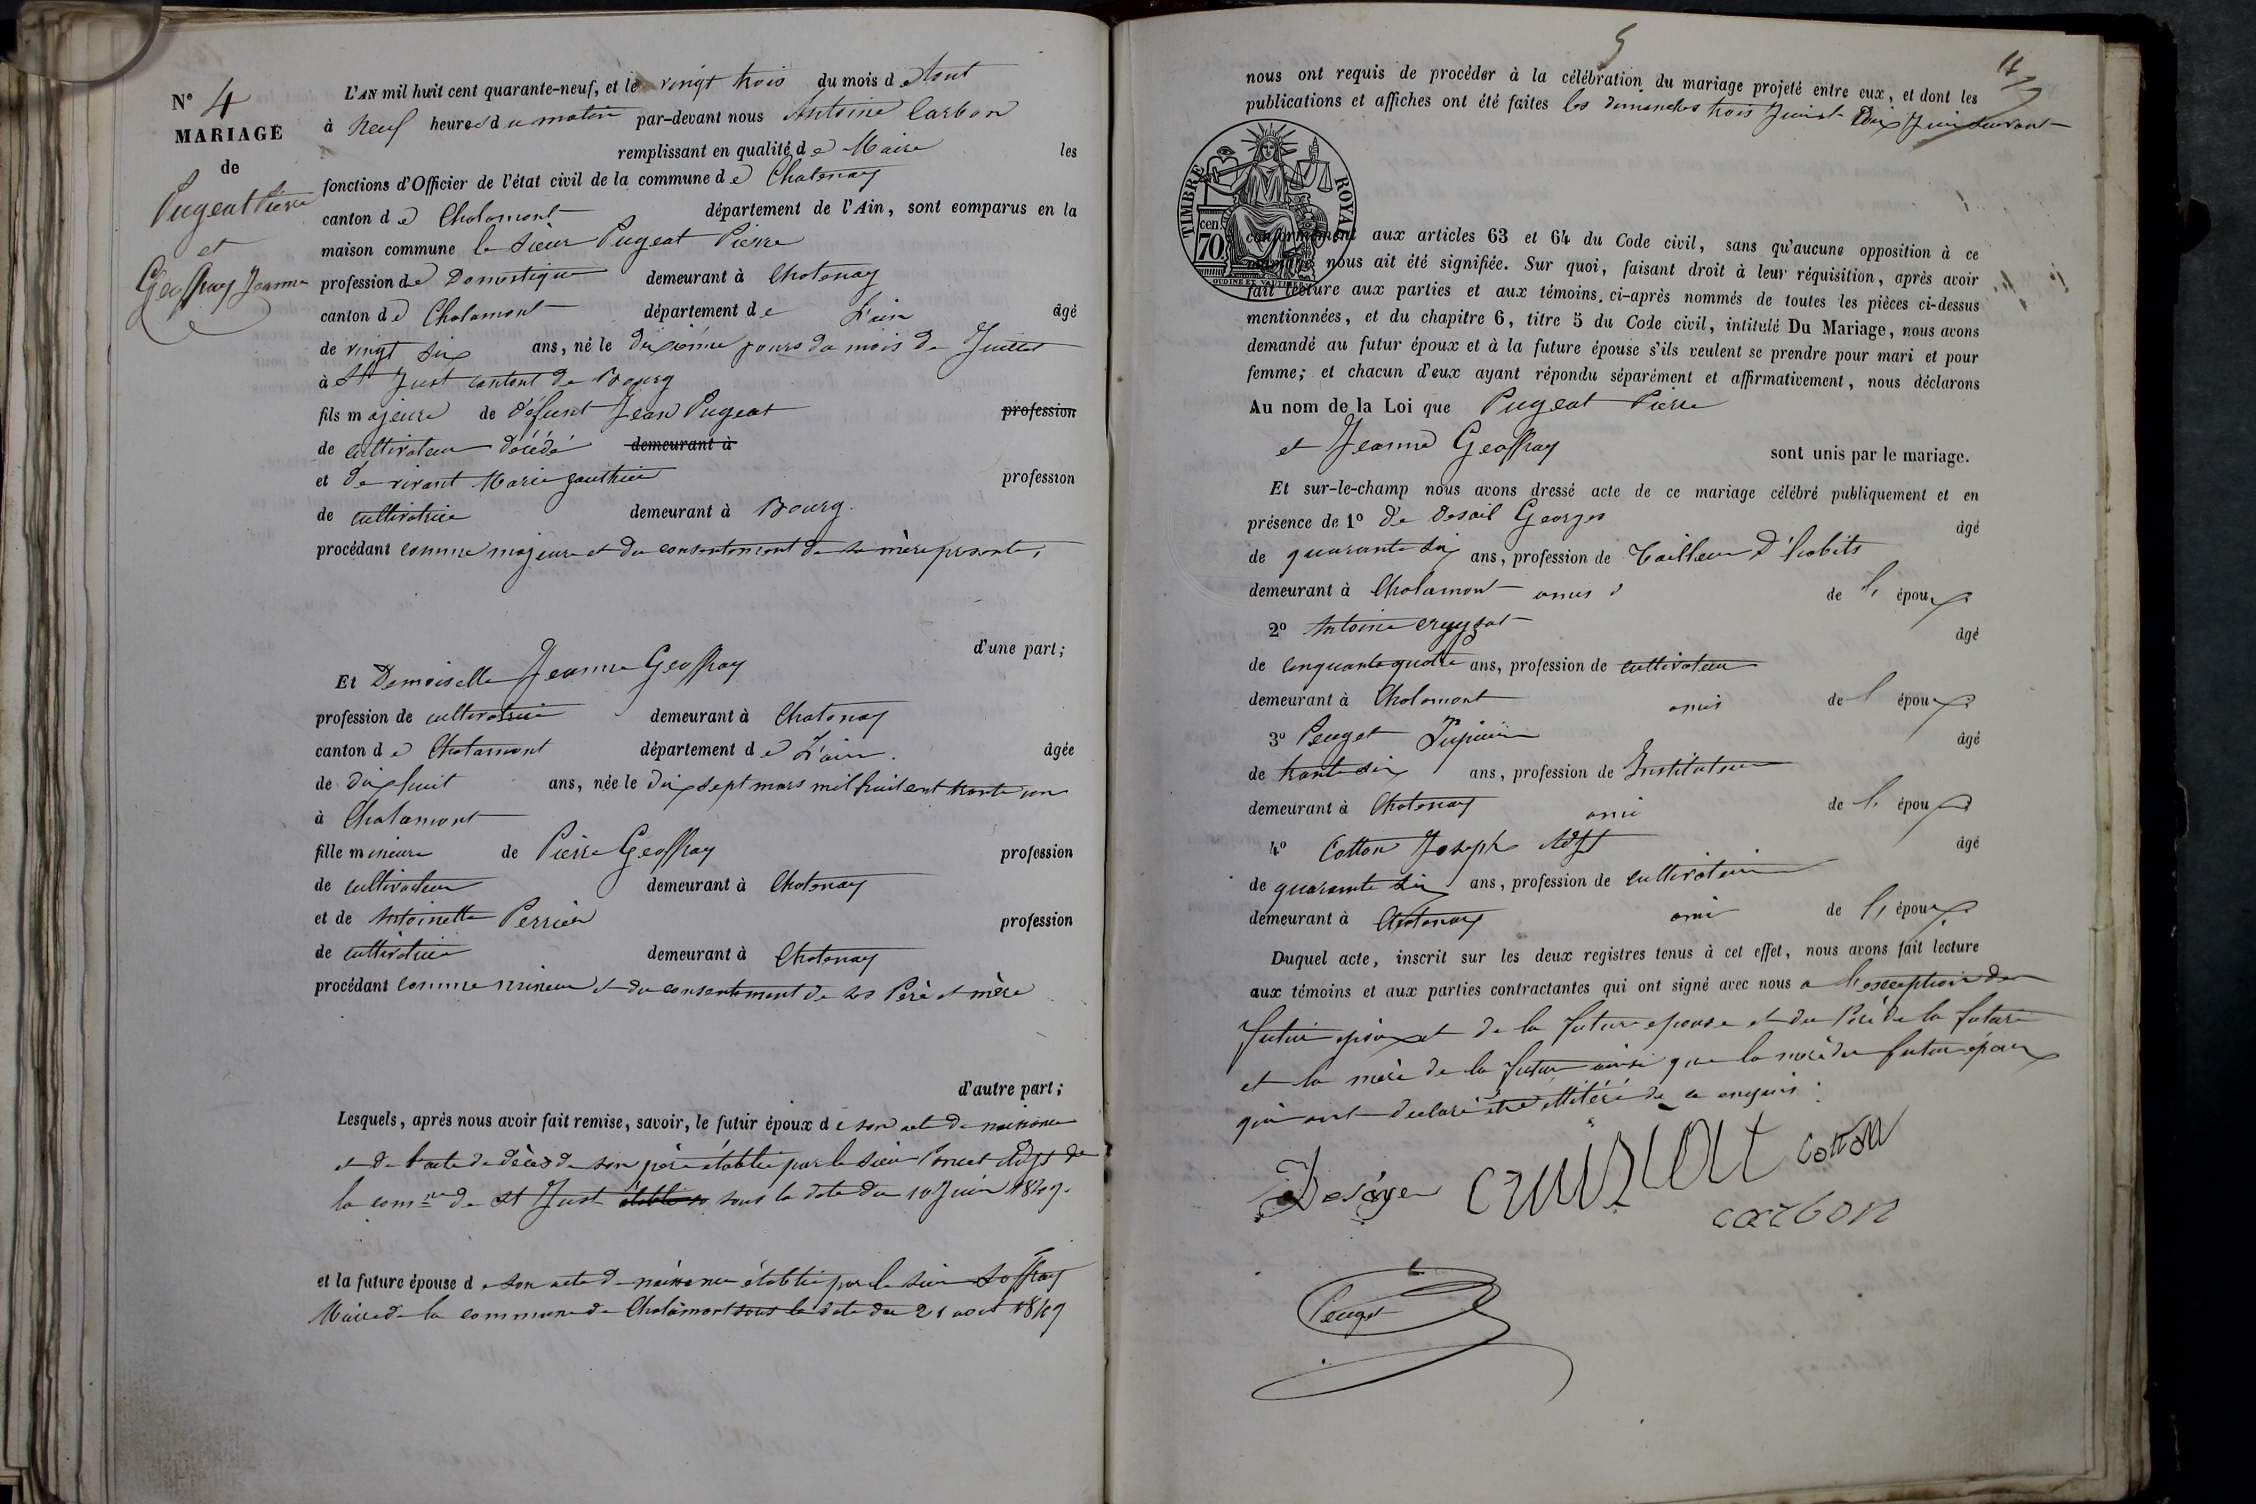 N° 4
MARIAGE
de
Pugeat Pierre
et
Geoffray Jeanne
L'AN mil huit cent quarante-neuf, et le vingt trois du mois d'Aout
à neuf heures du matin par-devant nous Antoine Carbon
remplissant en qualité de Maire les
fonctions d'Officier de l'état civil de la commune de Chatenay
canton de Chalamont département de l'Ain, sont comparus en la
maison commune le sieur Pugeat Pierre
profession de Domestique demeurant à Chatenay
canton de Chalamont département de L'ain âgé
de vingt six ans, né le dixième jours du mois de Juillet
à St Just cantont de Bourg
fils majeure de défunt Jean Pugeat profession
de cultivateur décédé demeurant à
et de vivant Marie gauthier profession
de cultivatrice demeurant à Bourg.
procédant comme majeure et du consentement de sa mère presente,
d'une part;
Et Demoiselle Jeanne Geoffray
profession de cultivatrice demeurant à Chatenay
canton de Chalamont département de L'ain. âgée
de dix huit ans, née le dix sept mars mil huit cent trente un
à Chalamont
fille mineure de Pierre Geoffray profession
de cultivateur demeurant à Chatenay
et de Antoinette Perrier profession
de cultivatrice demeurant à Chatenay
procédant comme mineur et du consentement de ses Père et mère
d'autre part;
Lesquels, après nous avoir fait remise, savoir, le futur époux de son acte de naissance
et de l'acte de décès de son père établie par le sieur Poncet Adjt de
la comne de St Just sous la date du 10 Juin 1849.
et la future épouse de son acte de naissance établie par le sieur Soffray
Maire de la commune de Chalamont sous la date du 21 aout 1849
5
nous ont requis de procéder à la célébration du mariage projeté entre eux, et dont les
publications et affiches ont été faites les dimanches trois Juin et Dix Juin suivant
TIMBRE ROYAL
70 cen
OUDINÉ ET VAUTHIER
conformément aux articles 63 et 64 du Code civil, sans qu'aucune opposition à ce
mariage nous ait été signifiée. Sur quoi, faisant droit à leur réquisition, après avoir
fait lecture aux parties et aux témoins, ci-après nommés de toutes les pièces ci-dessus
mentionnées, et du chapitre 6, titre 5 du Code civil, intitulé Du Mariage, nous avons
demandé au futur époux et à la future épouse s'ils veulent se prendre pour mari et pour
femme; et chacun d'eux ayant répondu séparément et affirmativement, nous déclarons
Au nom de la Loi que Pugeat Pierre
et Jeanne Geoffray sont unis par le mariage.
Et sur-le-champ nous avons dressé acte de ce mariage célébré publiquement et en
présence de 1° de Georges âgé
de quarante six ans, profession de Tailleur d'habits
demeurant à Chalamont amis de l'époux
2° Antoine âgé
de cinquante quatre ans, profession de cultivateur
demeurant à Chalamont amis de l'époux
3° Peuget âgé
de trente six ans, profession de Instituteur
demeurant à Chatenay ami de l'époux
4° Cotton Joseph Adjt âgé
de quarante six ans, profession de cultivateur
demeurant à Chatenay ami de l'époux
Duquel acte, inscrit sur les deux registres tenus à cet effet, nous avons fait lecture
aux témoins et aux parties contractantes qui ont signé avec nous a l'exception du
futur époux et de la future epouse et du Père de la future
et la mère de la future ainsi que la mère du futur époux
qui ont declaré être illitéré de ce enquis.
cotton
carbon
Peuget